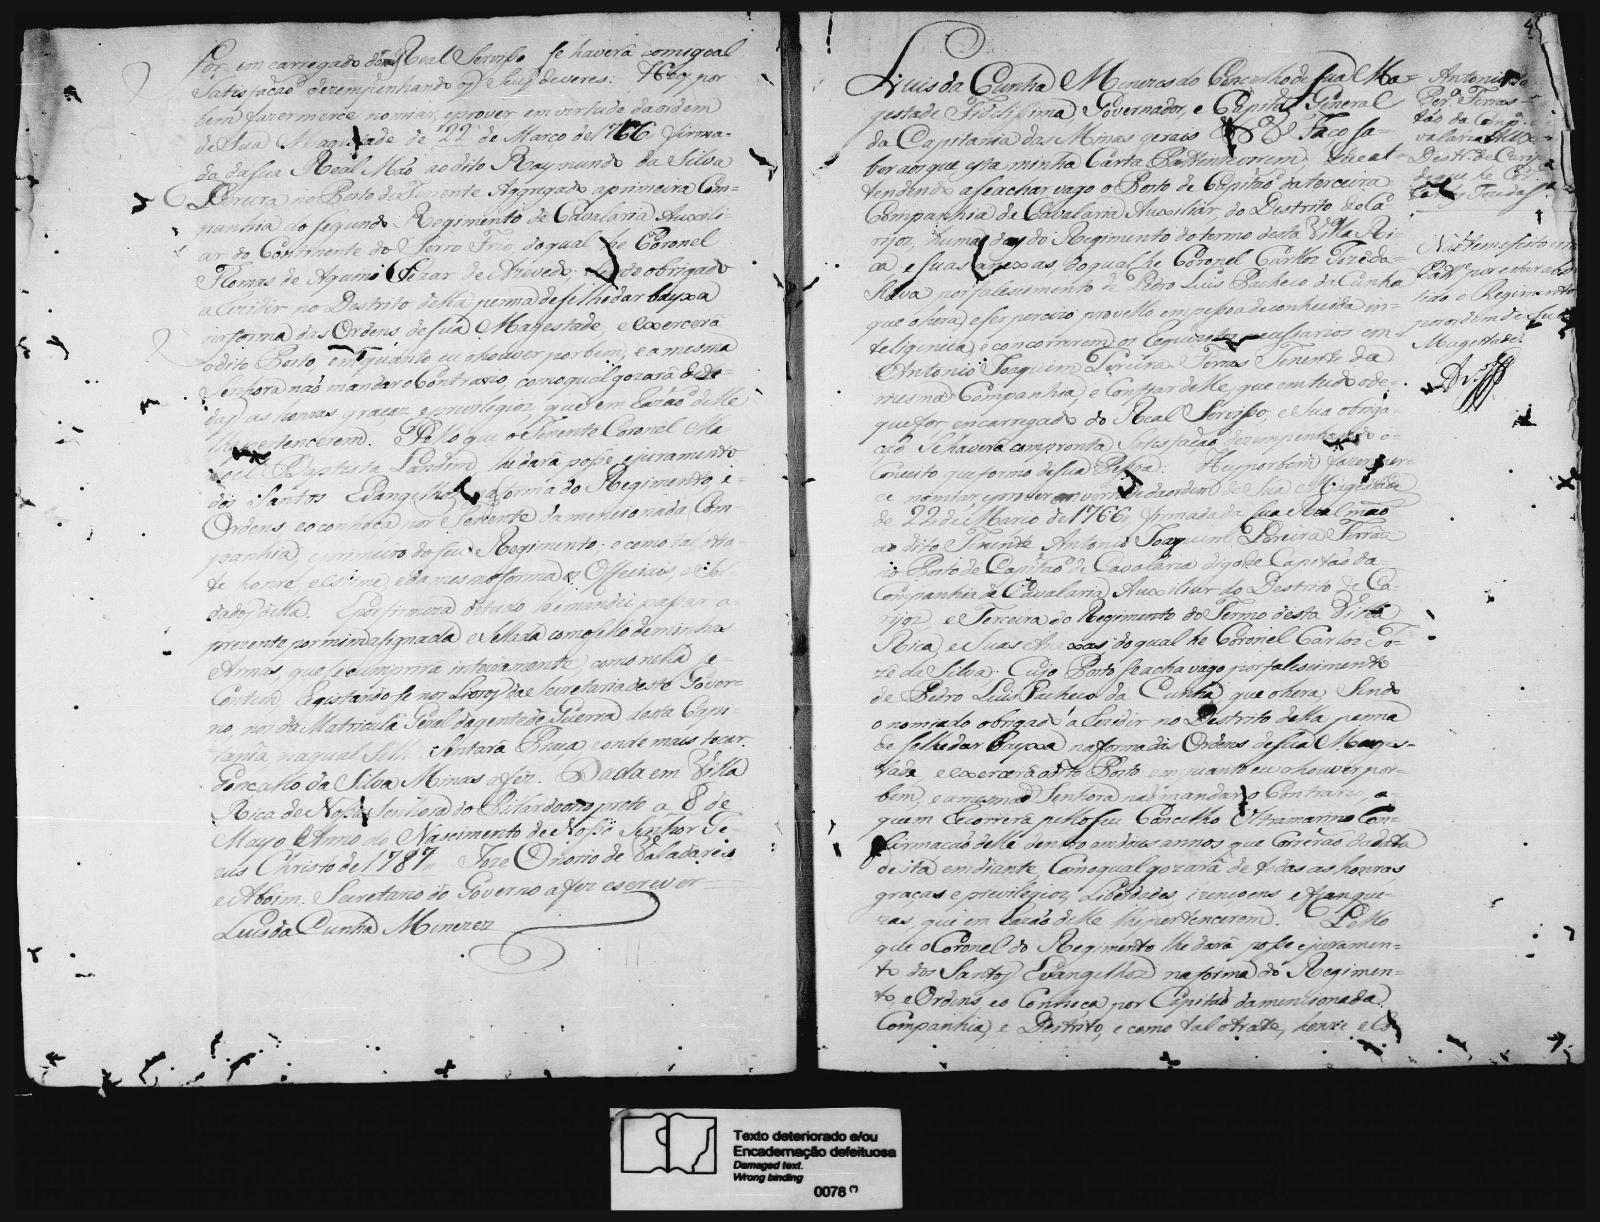 for em carregado do Real Servisso se haverá com igual
Satisfação dezempenhando os Seus deveres: Hey por
bem fazer merce nomiar, e prover em vertude da ordem
de Sua Magestade de 22 de Março de 1766 firma-
da da sua Real Mão ao dito Raymundo da Silva
Pereira no Posto de Tenente Aggregado a primeira Com-
panhia do segundo Regimento de Cavalaria Auxili-
ar do Continente do Serro Frio, do qual he Coronel
Thomas de Aquino Cezar de Azevedo; sendo obrigado
a Rezidir no Destrito della, penna de se lhe dar bayxa
na forma das Ordens de sua Magestade, e exercerá
o dito Posto, em quanto eu o houver por bem, e a mesma
Senhora não mandar o Contrario, com o qual gozará de to-
das as honras graças e previlegios, que em razão delle
lhe pertencerem. Pello que o Tenente Coronel Ma-
noel Baptista Landim lhe dará posse, e juramento
dos Santos Evangelhos na forma do Regimento, e
Ordens e o conheça por Tenente da mencionada Com-
panhia, e primeiro do seu Regimento; e como tal o tra-
te honre, e estime, e da mesma forma os Officiais, e Sol-
dados della. E por firmeza de tudo lhe mandei passar a
prezente por mim asignada e Sellada com o sello de minhas
Armas, que se cumprirá inteiramente como nella se
Contem Registando-se nos Livros da Secretaria deste Gover-
no, nos da Matricula Geral da gente de Guerra desta Capi-
tania, na qual se lhe Sentará Praça, e onde mais tocar.
Gonçallo da Silva Minas a fes. Dada em Villa
Rica de Nossa Senhora do Pilar do oiro preto a 8 de
Mayo Anno do Nascimento de Nosso Senhor Je-
zus Christo de 1787 Joze Onorio de Valadares
e Aboim. Secretario do Governo a fez escrever =
Luis da Cunha Menezes
Luis da Cunha Menezes do Conçelho de sua Ma-
gestade Fidelissima, Governador, e Capitão General
da Capitania das Minas gerais &ª &ª Faço sa-
ber aos que esta minha Carta Pattente virem, que at-
tendendo a se achar vago o Posto de Capitão da terceira
Companhia de Cavalaria Auxiliar do Destrito de Ca-
rijoz, huma das do Regimento do termo desta Villa Ri-
ca e suas anexas do qual he Coronel Carlos Joze da
Silva por falescimento de Pedro Luis Pacheco da Cunha
que o hera, e ser precizo provello em pessoa de conhecida in-
teligencia, e concorrerem os requizitos necessarios em
Antonio Joaquim Pereira Ferras Tenente da
mesma Companhia, e Confiar delle, que em tudo o de
que for encarregado do Real Servisso, e sua obriga-
ção se haverá com pronta Satisfação dezempenhando o
Conceito que formo de sua Pessoa: Hey por bem fazer mer-
ce nomiar, e prover em vertude da ordem de Sua Magestade
de 22 de Marco de 1766, firmada da sua Real mão
ao dito Tenente Antonio Joaquim Pereira Ferraz
no Posto de Capitão de Cavalaria digo de Capitão da
Companhia de Cavalaria Auxiliar do Destrito de Ca-
rijoz, e Terceira do Regimento do Termo desta Villa
Rica, e Suas Anexas, do qual he Coronel Carlos Jo-
ze da Silva. Cujo Posto se acha vago por falescimento
de Pedro Luis Pacheco da Cunha que o hera, Sendo
o nomiado obrigado a Rezidir no Destrito della, penna
de se lhe dar Bayxa na forma das Ordens de sua Mages-
tade, e exercerá o dito Posto em quanto eu o houver por
bem, e a mesma Senhora não mandar o Contrario, a
quem Recorrerá pello seu Concelho Ultramarino Con-
firmação delle dentro em dous annos que Correrão da data
desta em diante, Com o qual gozará de todas as honras
graças e previlegios, Liberdades, izençoens e franque-
zas, que em razão delle lhe pertencerem. Pello
que o Coronel do Regimento lhe dará posse e juramen-
to dos Santos Evangelhos na forma do Regimen-
to, e Ordens e o Conheça por Capitão da mencionada
Companhia, e Destrito, e como tal o trate, honre e Es
Antonio Jo
Per.ª Ferras
tão da Comp.
valaria Aux
Destr. de Carijo
de que he Cor
Carlos Joze da S.ª
Não tem efeito esta
Pat.e por estar abo
lido o Regimento
por ordem de Sua
Magestade.
Texto deteriorado e/ou
Encadernação defeituosa
Damaged text.
Wrong binding
0078 (*)